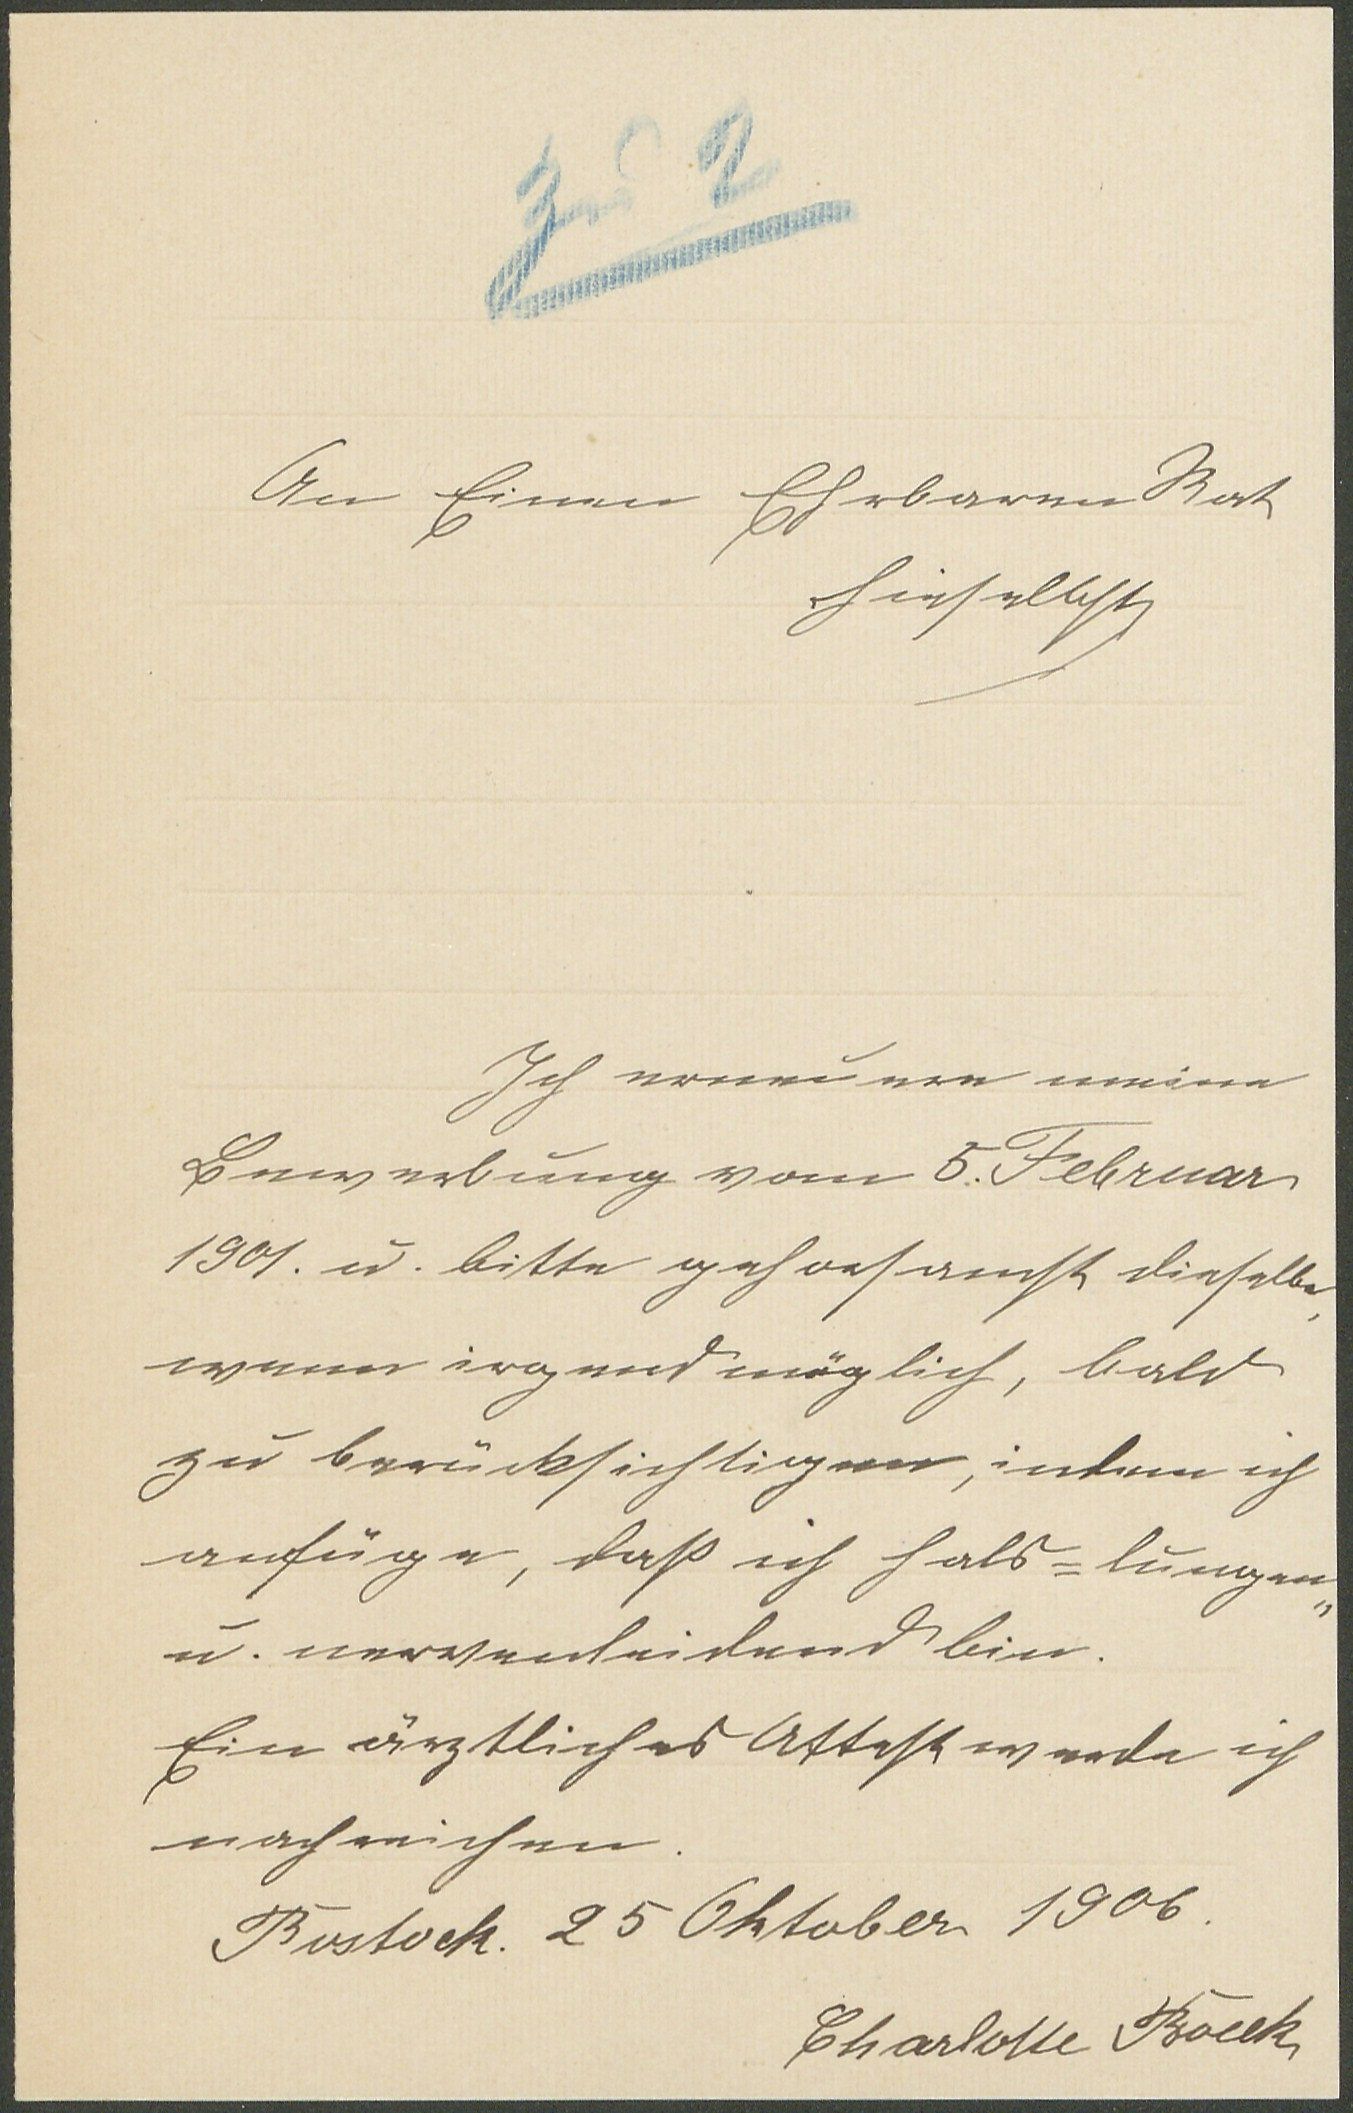 zu 2
An Einen Ehrbaren Rat
hieselbst
Ich erneuere meine
Bewerbung vom 5. Februar
1901. u. bitte gehorsamst dieselbe,
wenn irgend möglich, bald
zu berücksichtigen, indem ich
anfüge, daß ich hals=lungen„
u. nervenleidend bin.
Ein ärztliches Attest werde ich
nachreichen.
Rostock. 25 Oktober 1906.
Charlotte